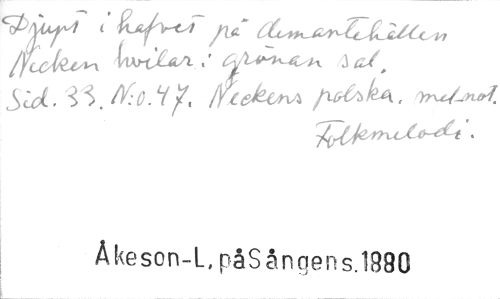 Djupt i hafvet på demantehällen
Necken hvilar i grönan sal.
Sid. 33. N:o. 47. Neckens polska. mel. not.
Folkmelodi.
Åkeson-L, påSångens.1880